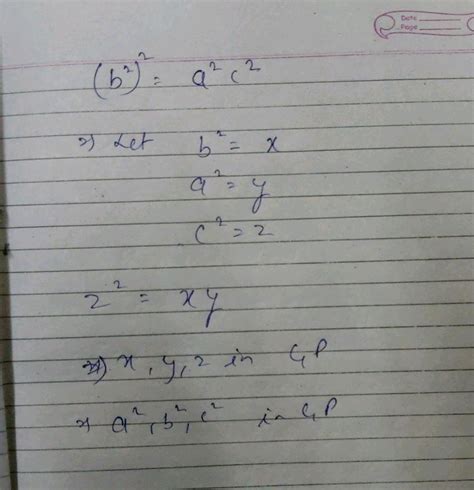 Date
Page
(b²)² = a² c²
⇒) Let b² = x
a² = y
c² = z
z² = xy
⇒) x, y, z in GP
⇒ a², b², c² in GP